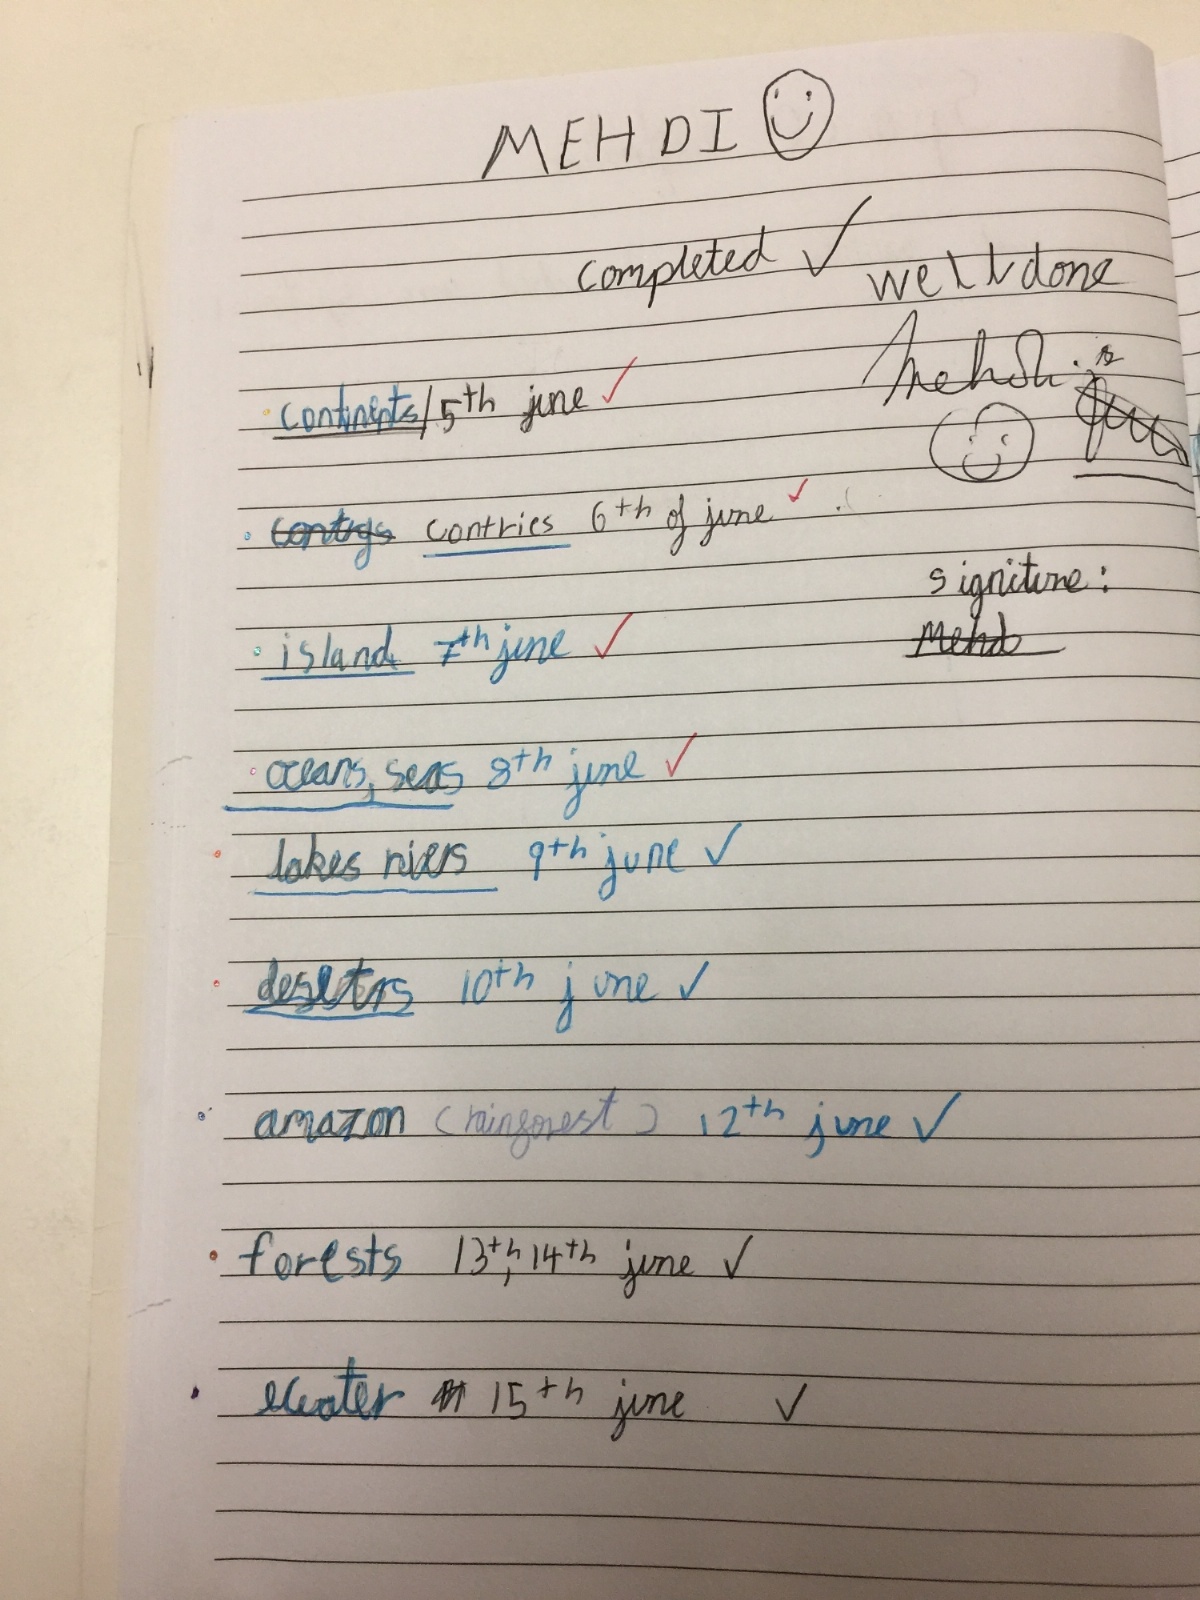 MEHDI
completed ✓
well done
Mehdi
continents / 5th june ✓
contries 6th of june ✓
signiture:
Mehd
island 7th june ✓
oceans, seas 8th june ✓
lakes rivers 9th june ✓
10th june ✓
amazon (rainforest) 12th june ✓
forests 13th, 14th june ✓
15th june ✓